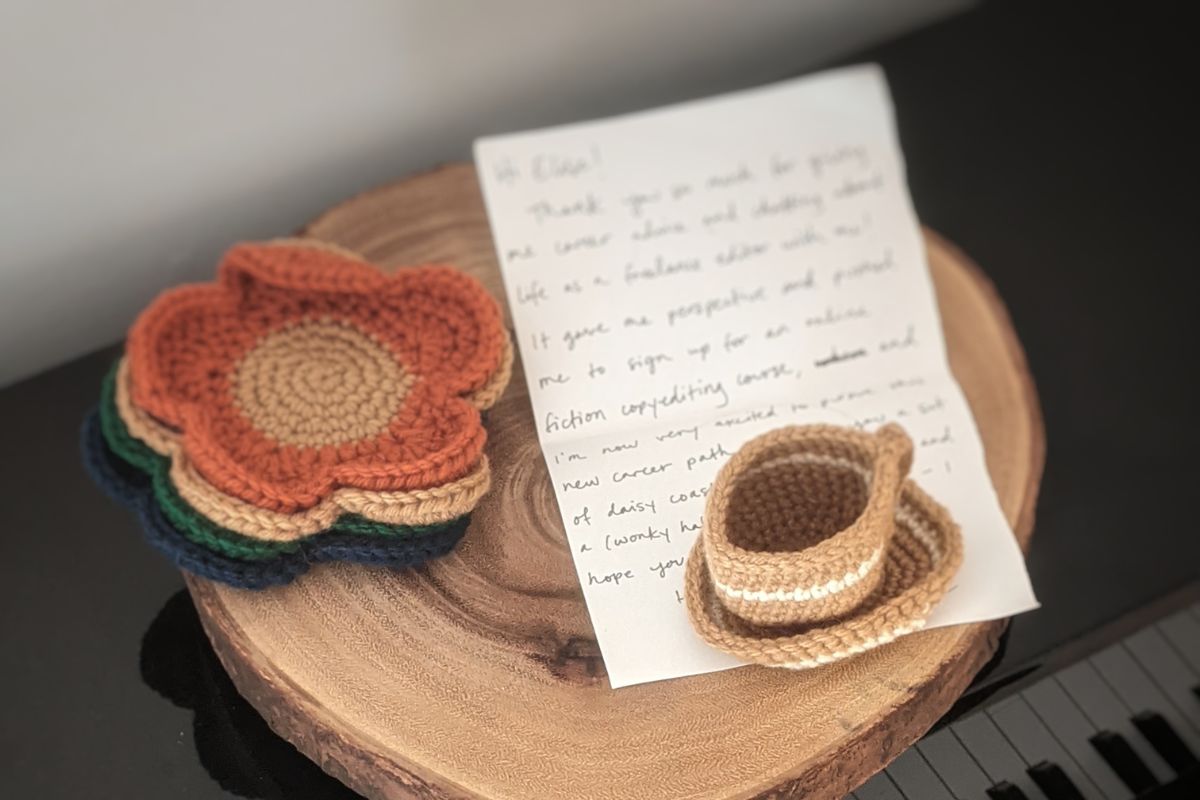 Hi Elisa!
Thank you so much for giving
me career advice and chatting about
life as a freelance editor with me!
It gave me perspective and pushed
me to sign up for an online
fiction copyediting course, and
I'm now very excited to pursue this
new career path you a set
of daisy coas and
a (wonky ha
hope you